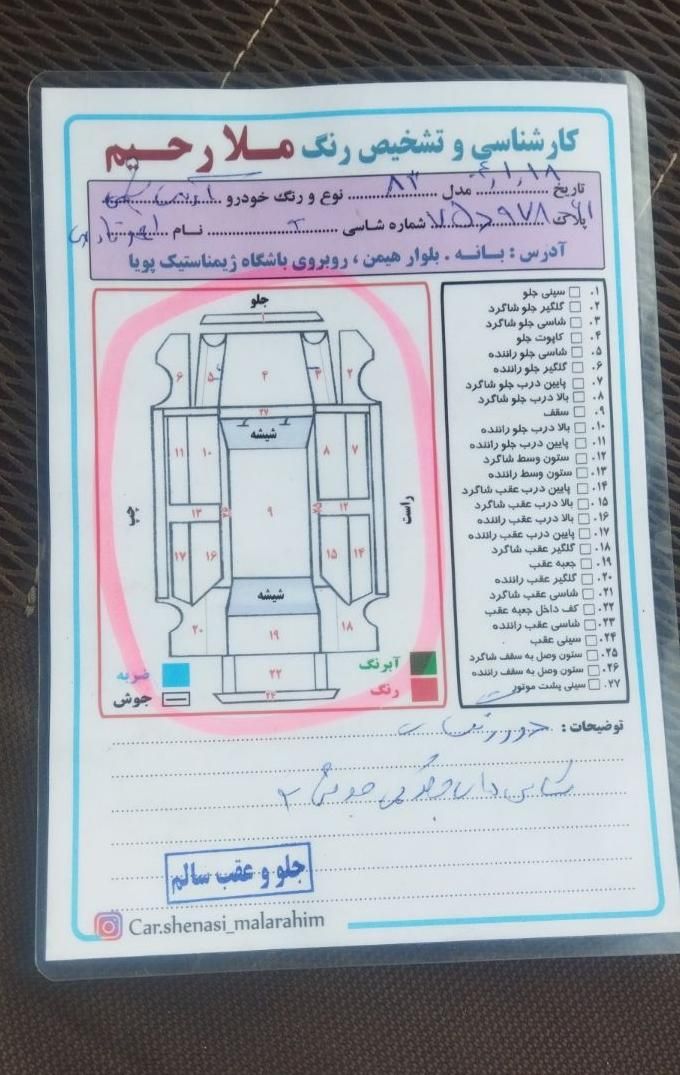 کارشناسی و تشخیص رنگ ملا رحیم
تاریخ ................ مدل ۸۳ ................ نوع و رنگ خودرو ................
پلاک ................ شماره شاسی ................ نام ................
آدرس : بانه . بلوار هیمن ، روبروی باشگاه ژیمناستیک پویا
جلو
۱
۶ ۵ ۴ ۳ ۲
۲۷
شیشه
۱۱ ۱۰ ۸ ۷
چپ ۱۳ ۲۶ ۹ ۲۵ ۱۲ راست
۱۷ ۱۶ ۱۵ ۱۴
شیشه
۲۰ ۱۹ ۱۸
۲۲
۲۴
آبرنگ
رنگ
ضربه
جوش
۰۱ سینی جلو
۰۲ گلگیر جلو شاگرد
۰۳ شاسی جلو شاگرد
۰۴ کاپوت جلو
۰۵ شاسی جلو راننده
۰۶ گلگیر جلو راننده
۰۷ پایین درب جلو شاگرد
۰۸ بالا درب جلو شاگرد
۰۹ سقف
۰۱۰ بالا درب جلو راننده
۰۱۱ پایین درب جلو راننده
۰۱۲ ستون وسط شاگرد
۰۱۳ ستون وسط راننده
۰۱۴ پایین درب عقب شاگرد
۰۱۵ بالا درب عقب شاگرد
۰۱۶ بالا درب عقب راننده
۰۱۷ پایین درب عقب راننده
۰۱۸ گلگیر عقب شاگرد
۰۱۹ جعبه عقب
۰۲۰ گلگیر عقب راننده
۰۲۱ شاسی عقب شاگرد
۰۲۲ کف داخل جعبه عقب
۰۲۳ شاسی عقب راننده
۰۲۴ سینی عقب
۰۲۵ ستون وصل به سقف شاگرد
۰۲۶ ستون وصل به سقف راننده
۰۲۷ سینی پشت موتور
توضیحات : دور رنگ
جلو و عقب سالم
Car.shenasi_malarahim